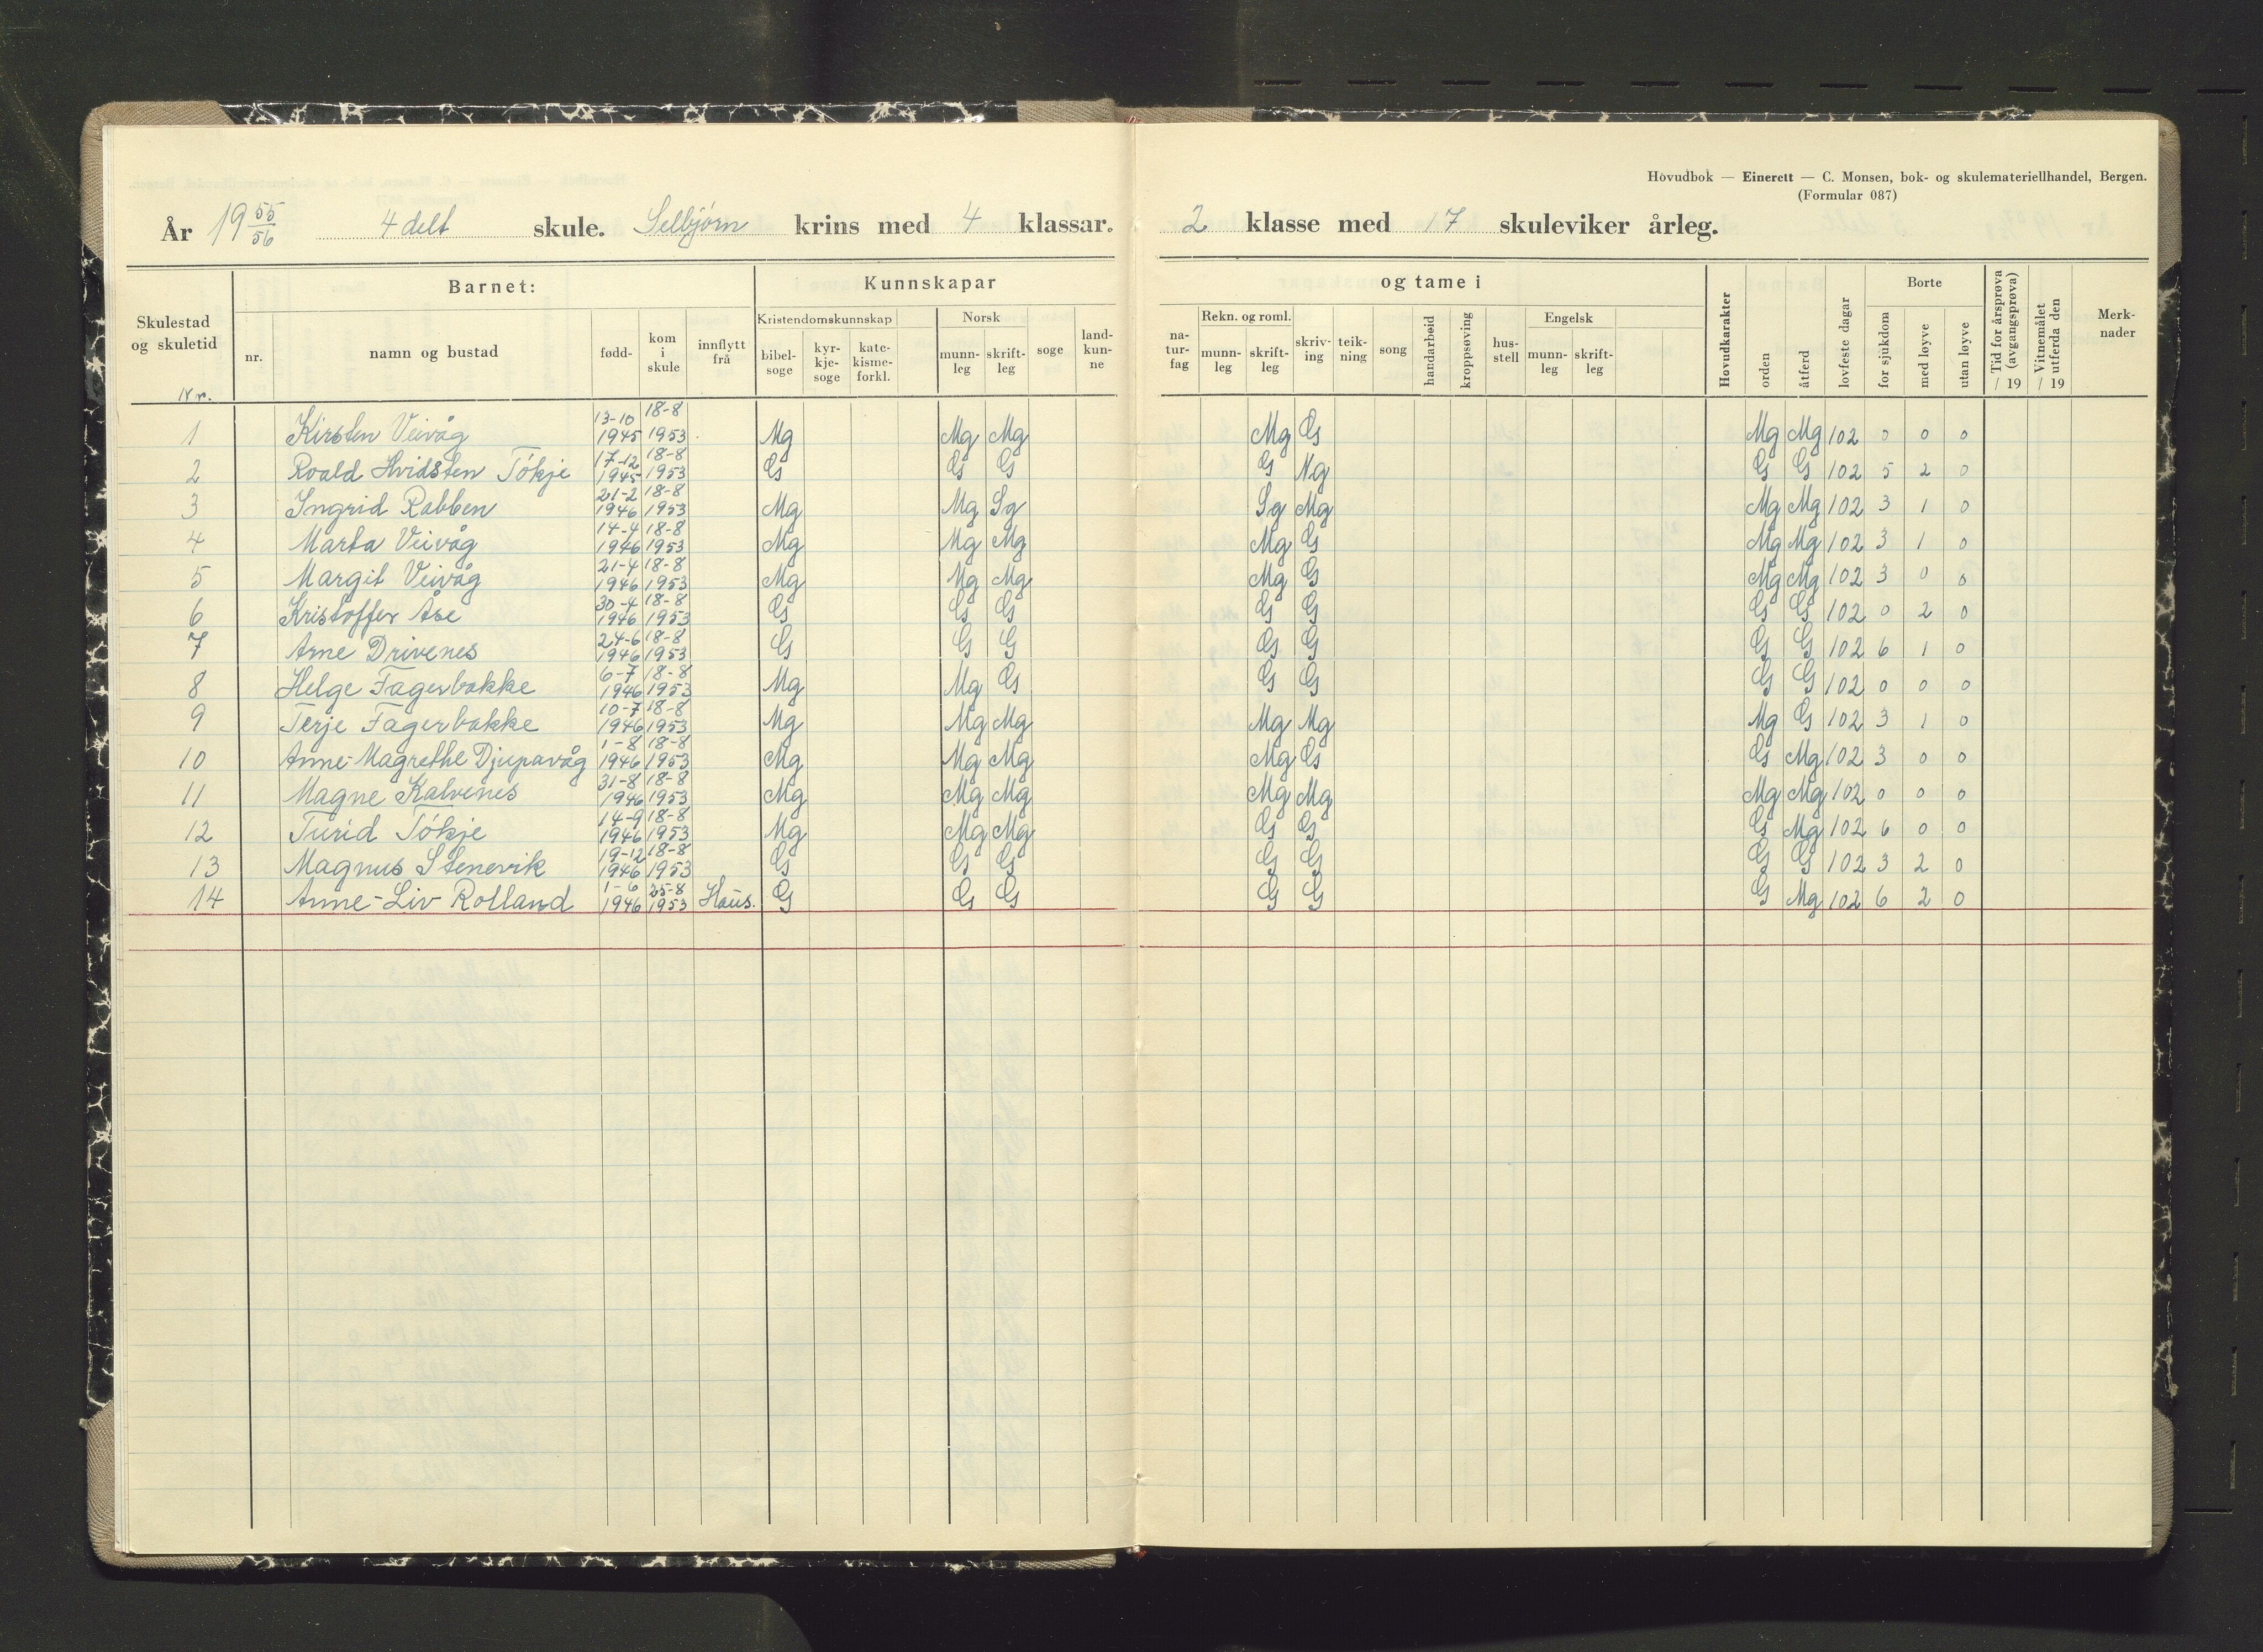 Hovudbok — Einerett — C. Monsen, bok- og skulemateriellhandel, Bergen.
(Formular 087)
År 19 55/56 4 delt skule. Selbjørn krins med 4 klassar. 2 klasse med 17 skuleviker årleg.
Skulestad og skuletid Nr.
Barnet:
nr. namn og bustad fødd- kom i skule innflytt frå
Kunnskapar og tame i
Kristendomskunnskap
bibel-soge kyr-kje-soge kate-kisme-forkl.
Norsk
munn-leg skrift-leg soge land-kun-ne
na-tur-fag
Rekn. og roml.
munn-leg skrift-leg skriv-ing teik-ning song handarbeid kroppsøving hus-stell
Engelsk
munn-leg skrift-leg
Hovudkarakter orden åtferd lovfeste dagar
Borte
for sjukdom med løyve utan løyve
Tid for årsprøva (avgangsprøva) / 19
Vitnemålet utferda den / 19
Merk-nader
1 Kirsten Veivåg 13-10 1945 18-8 1953 Mg Mg Mg Mg G Mg Mg 102 0 0 0
2 Roald Hvidsten Tøkje 17-12 1945 18-8 1953 G G G G Ng G G 102 5 2 0
3 Ingrid Rabben 21-2 1946 18-8 1953 Mg Mg Sg Sg Mg Mg Mg 102 3 1 0
4 Marta Veivåg 14-4 1946 18-8 1953 Mg Mg Mg Mg G Mg Mg 102 3 1 0
5 Margit Veivåg 21-4 1946 18-8 1953 Mg Mg Mg Mg G Mg Mg 102 3 0 0
6 Kristoffer Åse 30-4 1946 18-8 1953 G G G G G G G 102 0 2 0
7 Arne Drivenes 24-6 1946 18-8 1953 G G G G G G G 102 6 1 0
8 Helge Fagerbakke 6-7 1946 18-8 1953 Mg Mg G G G G G 102 0 0 0
9 Terje Fagerbakke 10-7 1946 18-8 1953 Mg Mg Mg Mg Mg Mg G 102 3 1 0
10 Anne-Magrethe Djupavåg 1-8 1946 18-8 1953 Mg Mg Mg Mg G G Mg 102 3 0 0
11 Magne Kalvenes 31-8 1946 18-8 1953 Mg Mg Mg Mg Mg Mg Mg 102 0 0 0
12 Turid Tøkje 14-9 1946 18-8 1953 Mg Mg Mg G G G Mg 102 6 0 0
13 Magnus Stenevik 19-12 1946 18-8 1953 G G G G G G G 102 3 2 0
14 Anne-Liv Rolland 1-6 1946 25-8 1953 Haus. G G G G G G Mg 102 6 2 0